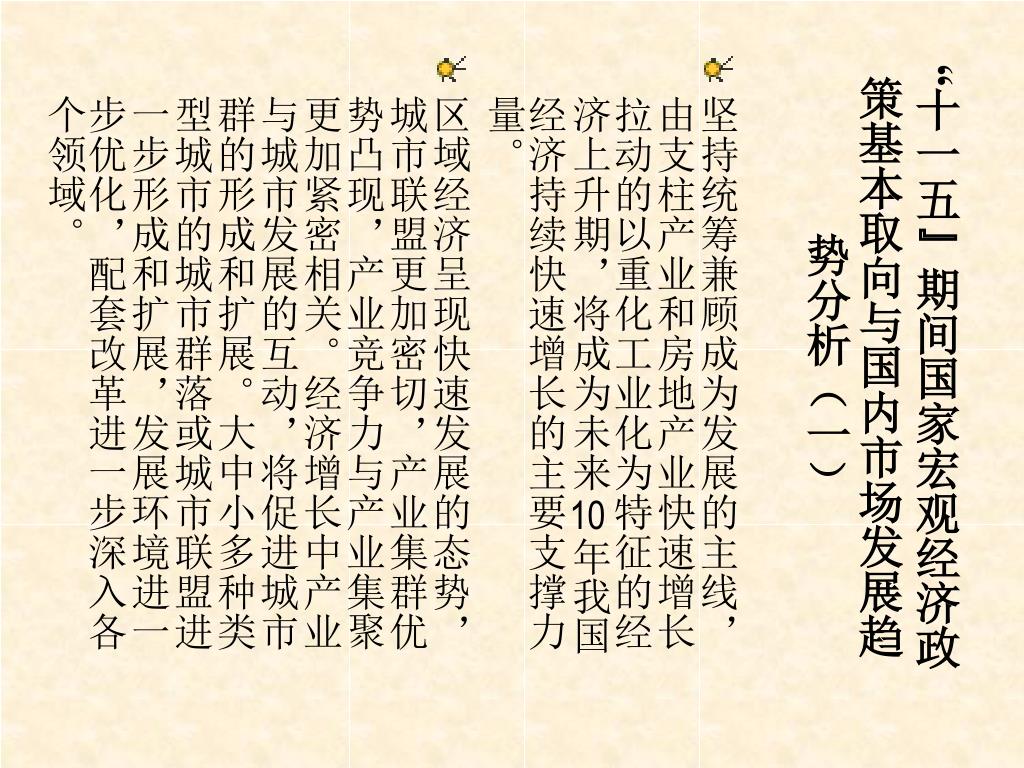 “十一五』期间国家宏观经济政
策基本取向与国内市场发展趋
势分析（一）
坚持统筹兼顾成为发展的主线，
由支柱产业和房地产业快速增长
拉动的以重化工业化为特征的经
济上升期，将成为未来10年我国
经济持续快速增长的主要支撑力
量。
区域经济呈现快速发展的态势，
城市联盟更加密切，产业集群优
势凸现，产业竞争力与产业集聚
更加紧密相关。经济增长中产业
与城市发展的互动，将促进城市
群的形成和扩展。大中小多种类
型城市的城市群落或城市联盟进
一步形成和扩展，发展环境进一
步优化，配套改革进一步深入各
个领域。